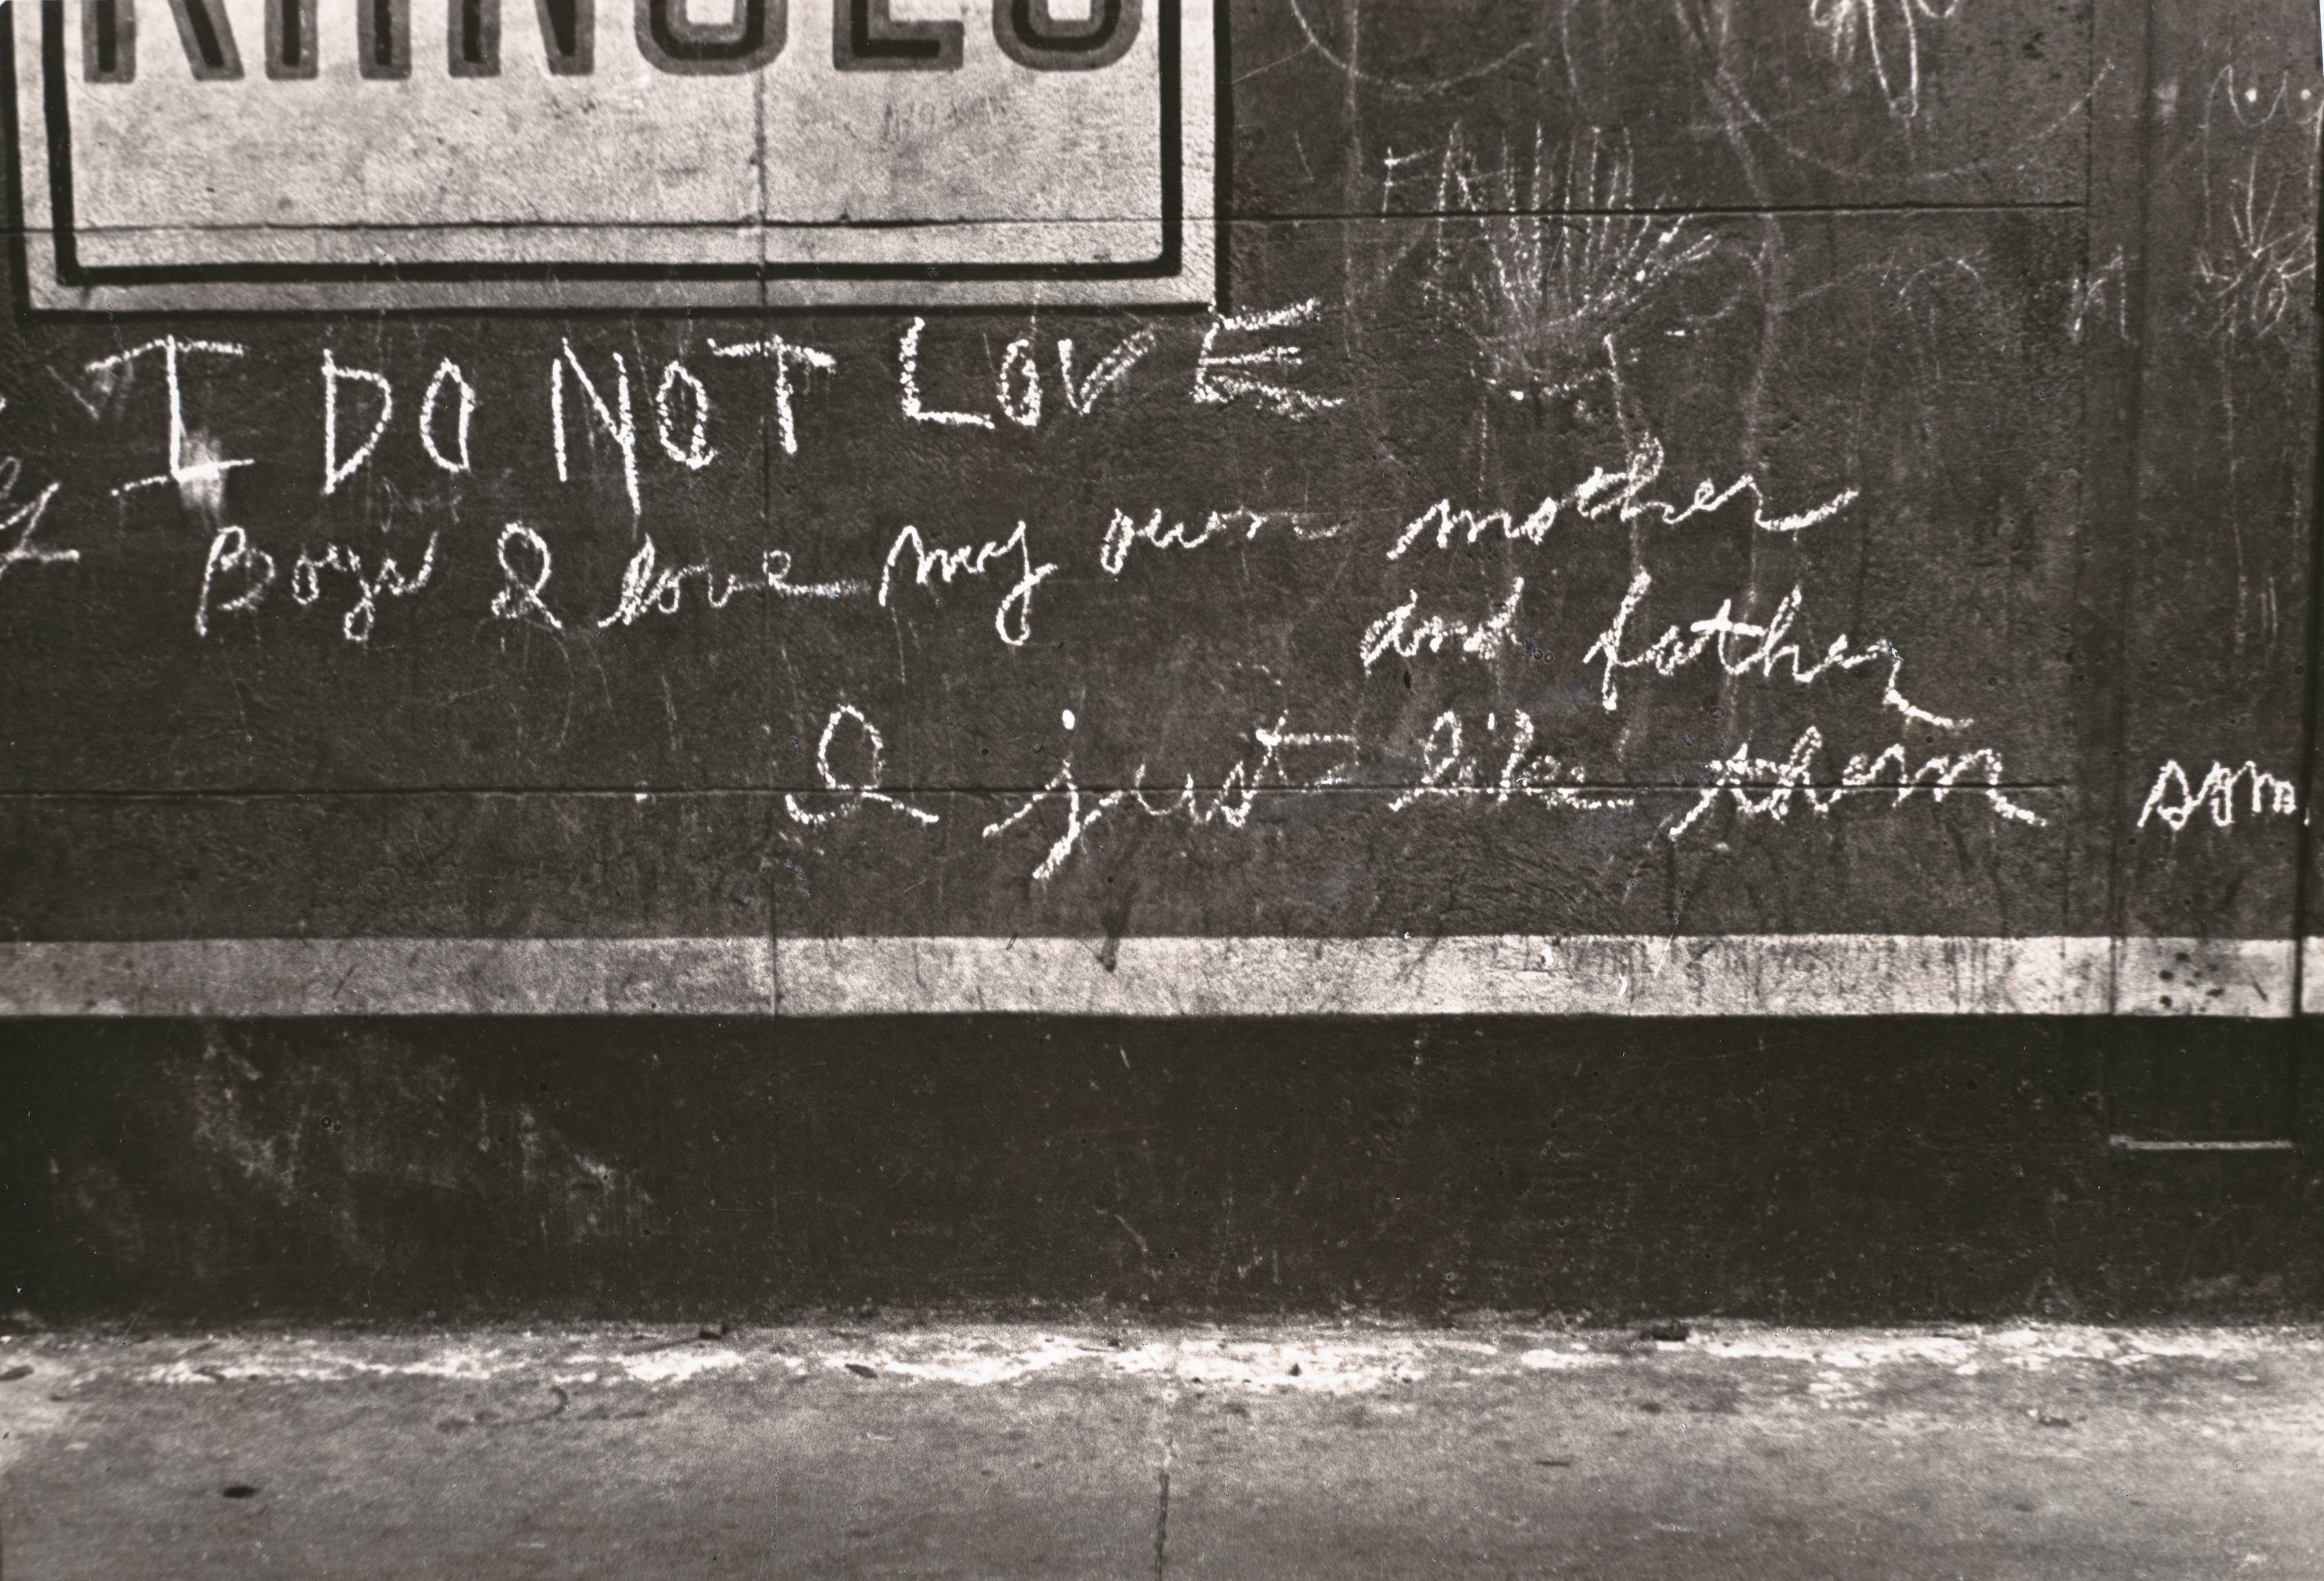 I DO NOT LOVE
Boys I love my own mother
and father
I just like them